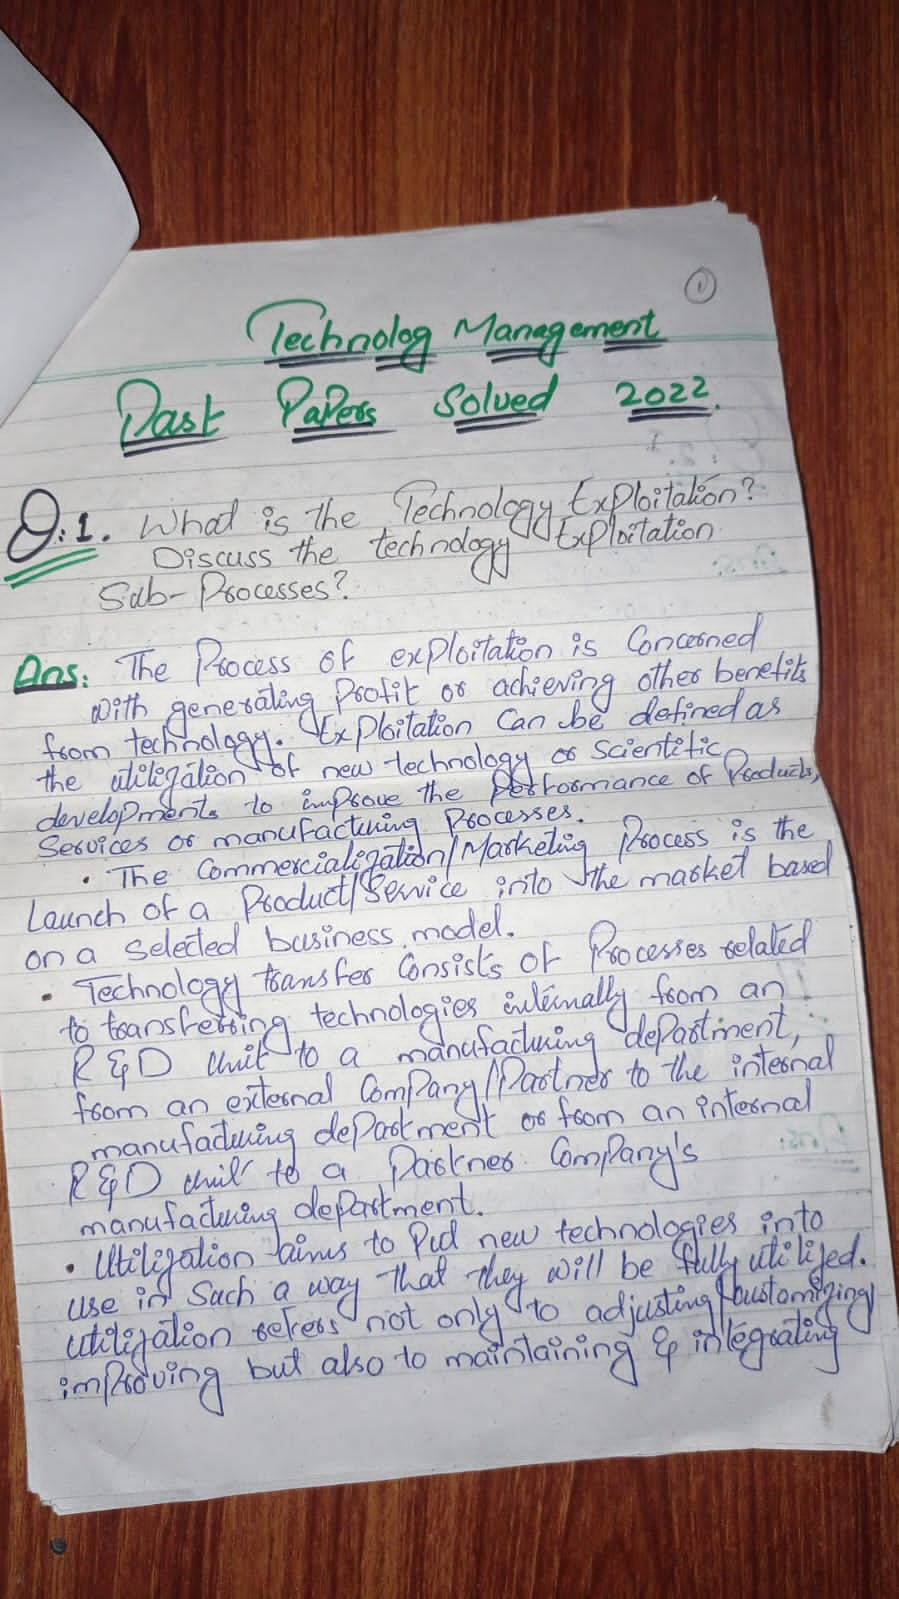 1
Technolog Management
Past Papers Solved 2022.
Q:1. What is the Technology Exploitation?
Discuss the technology Exploitation
Sub-Processes?
Ans: The Process of exploitation is Concerned
with generating Profit or achieving other benefits
from technology. Exploitation Can be defined as
the utilization of new technology or Scientific
developments to improve the Performance of Products,
Services or manufacturing Processes.
• The Commercialization/Marketing Process is the
Launch of a Product/Service into the market based
on a Selected business model.
• Technology transfer Consists of Processes related
to transferring technologies internally from an
R&D Unit to a manufacturing department,
from an external Company/Partner to the internal
manufacturing department or from an internal
R&D unit to a Partner Company's
manufacturing department.
• Utilization aims to Put new technologies into
use in Such a way that they will be fully utilized.
utilization refers not only to adjusting/customizing/
improving but also to maintaining & integrating